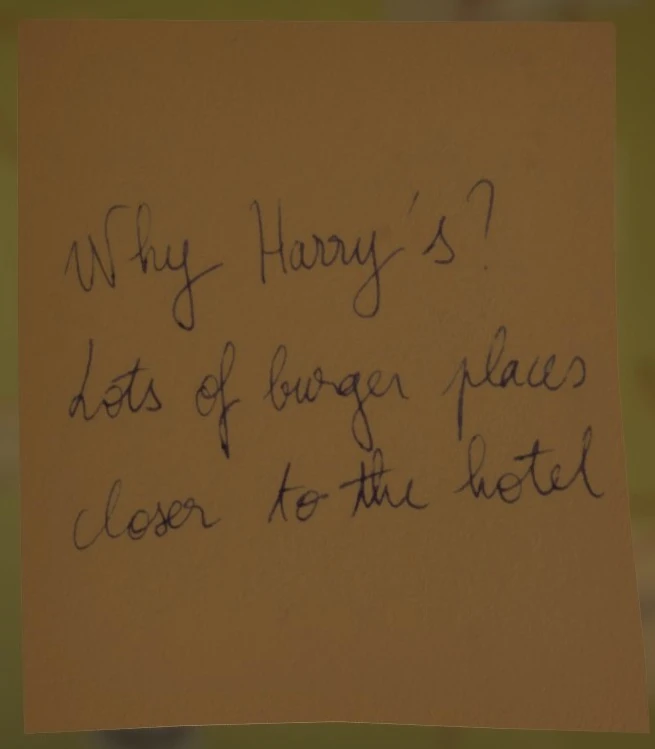 Why Harry's?
Lots of burger places
closer to the hotel